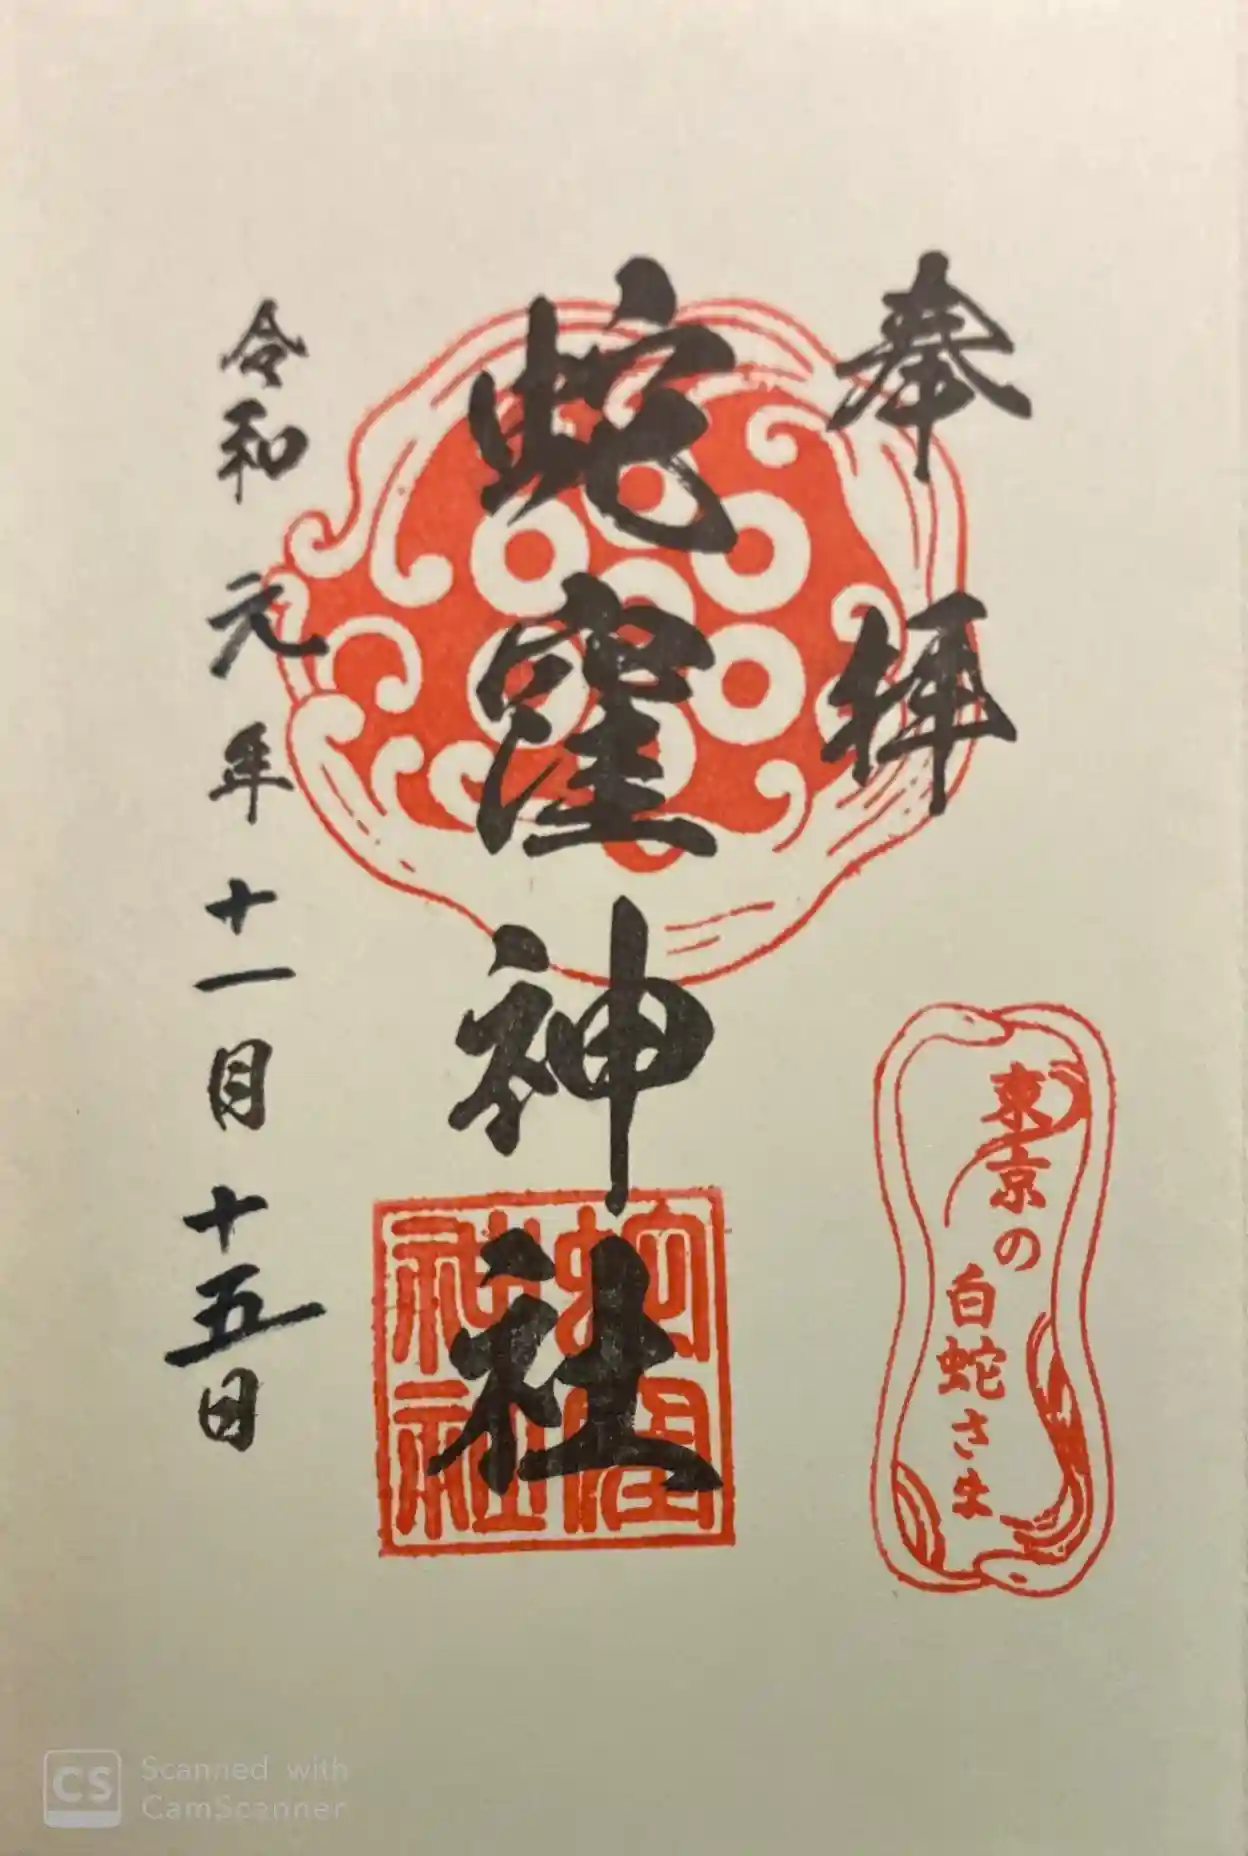 奉拝
東京の
白蛇さま
蛇窪神社
蛇窪
神社
令和元年十一月十五日
CS Scanned with
CamScanner